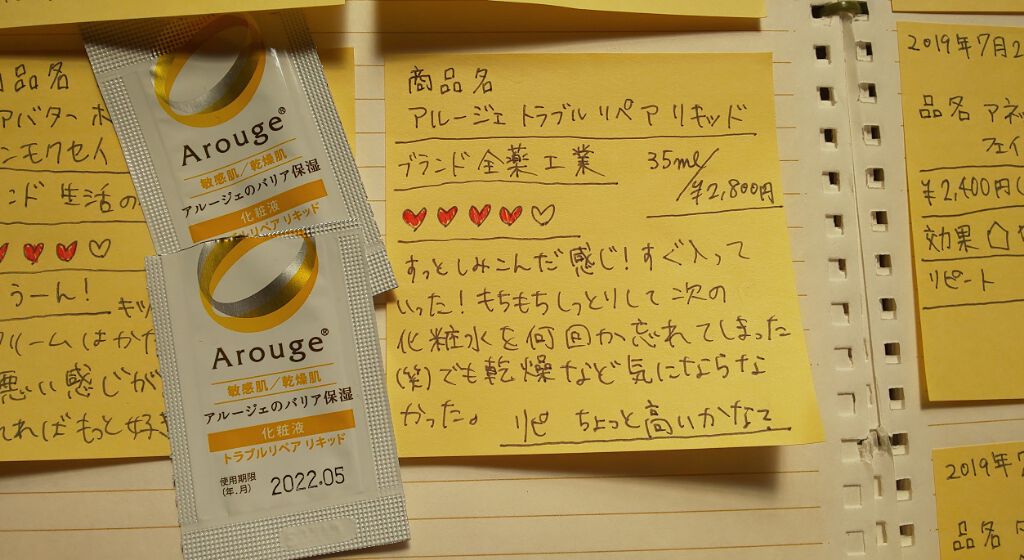 品名
アバター ホ
ンモクセイ
ンド 生活の
うーん!
キッ
クリームはかた
悪い感じが
ればもっと好き
Arouge®
敏感肌/乾燥肌
アルージェのバリア保湿
化粧液
トラブルリペア リキッド
Arouge®
敏感肌/乾燥肌
アルージェのバリア保湿
化粧液
トラブルリペア リキッド
使用期限
(年.月)
2022.05
商品名
アルージェ トラブルリペア リキッド
ブランド 全薬工業 35ml/¥2,800円
すっとしみこんだ感じ!すぐ入って
いった!もちもちしっとりして次の
化粧水を何回か忘れてしまった
(笑)でも乾燥など気にならな
かった。 リピ ちょっと高いかなて
2019年7月2
品名 アネッ
フェイ
¥2,400円(
効果
リピート
2019年7
品名